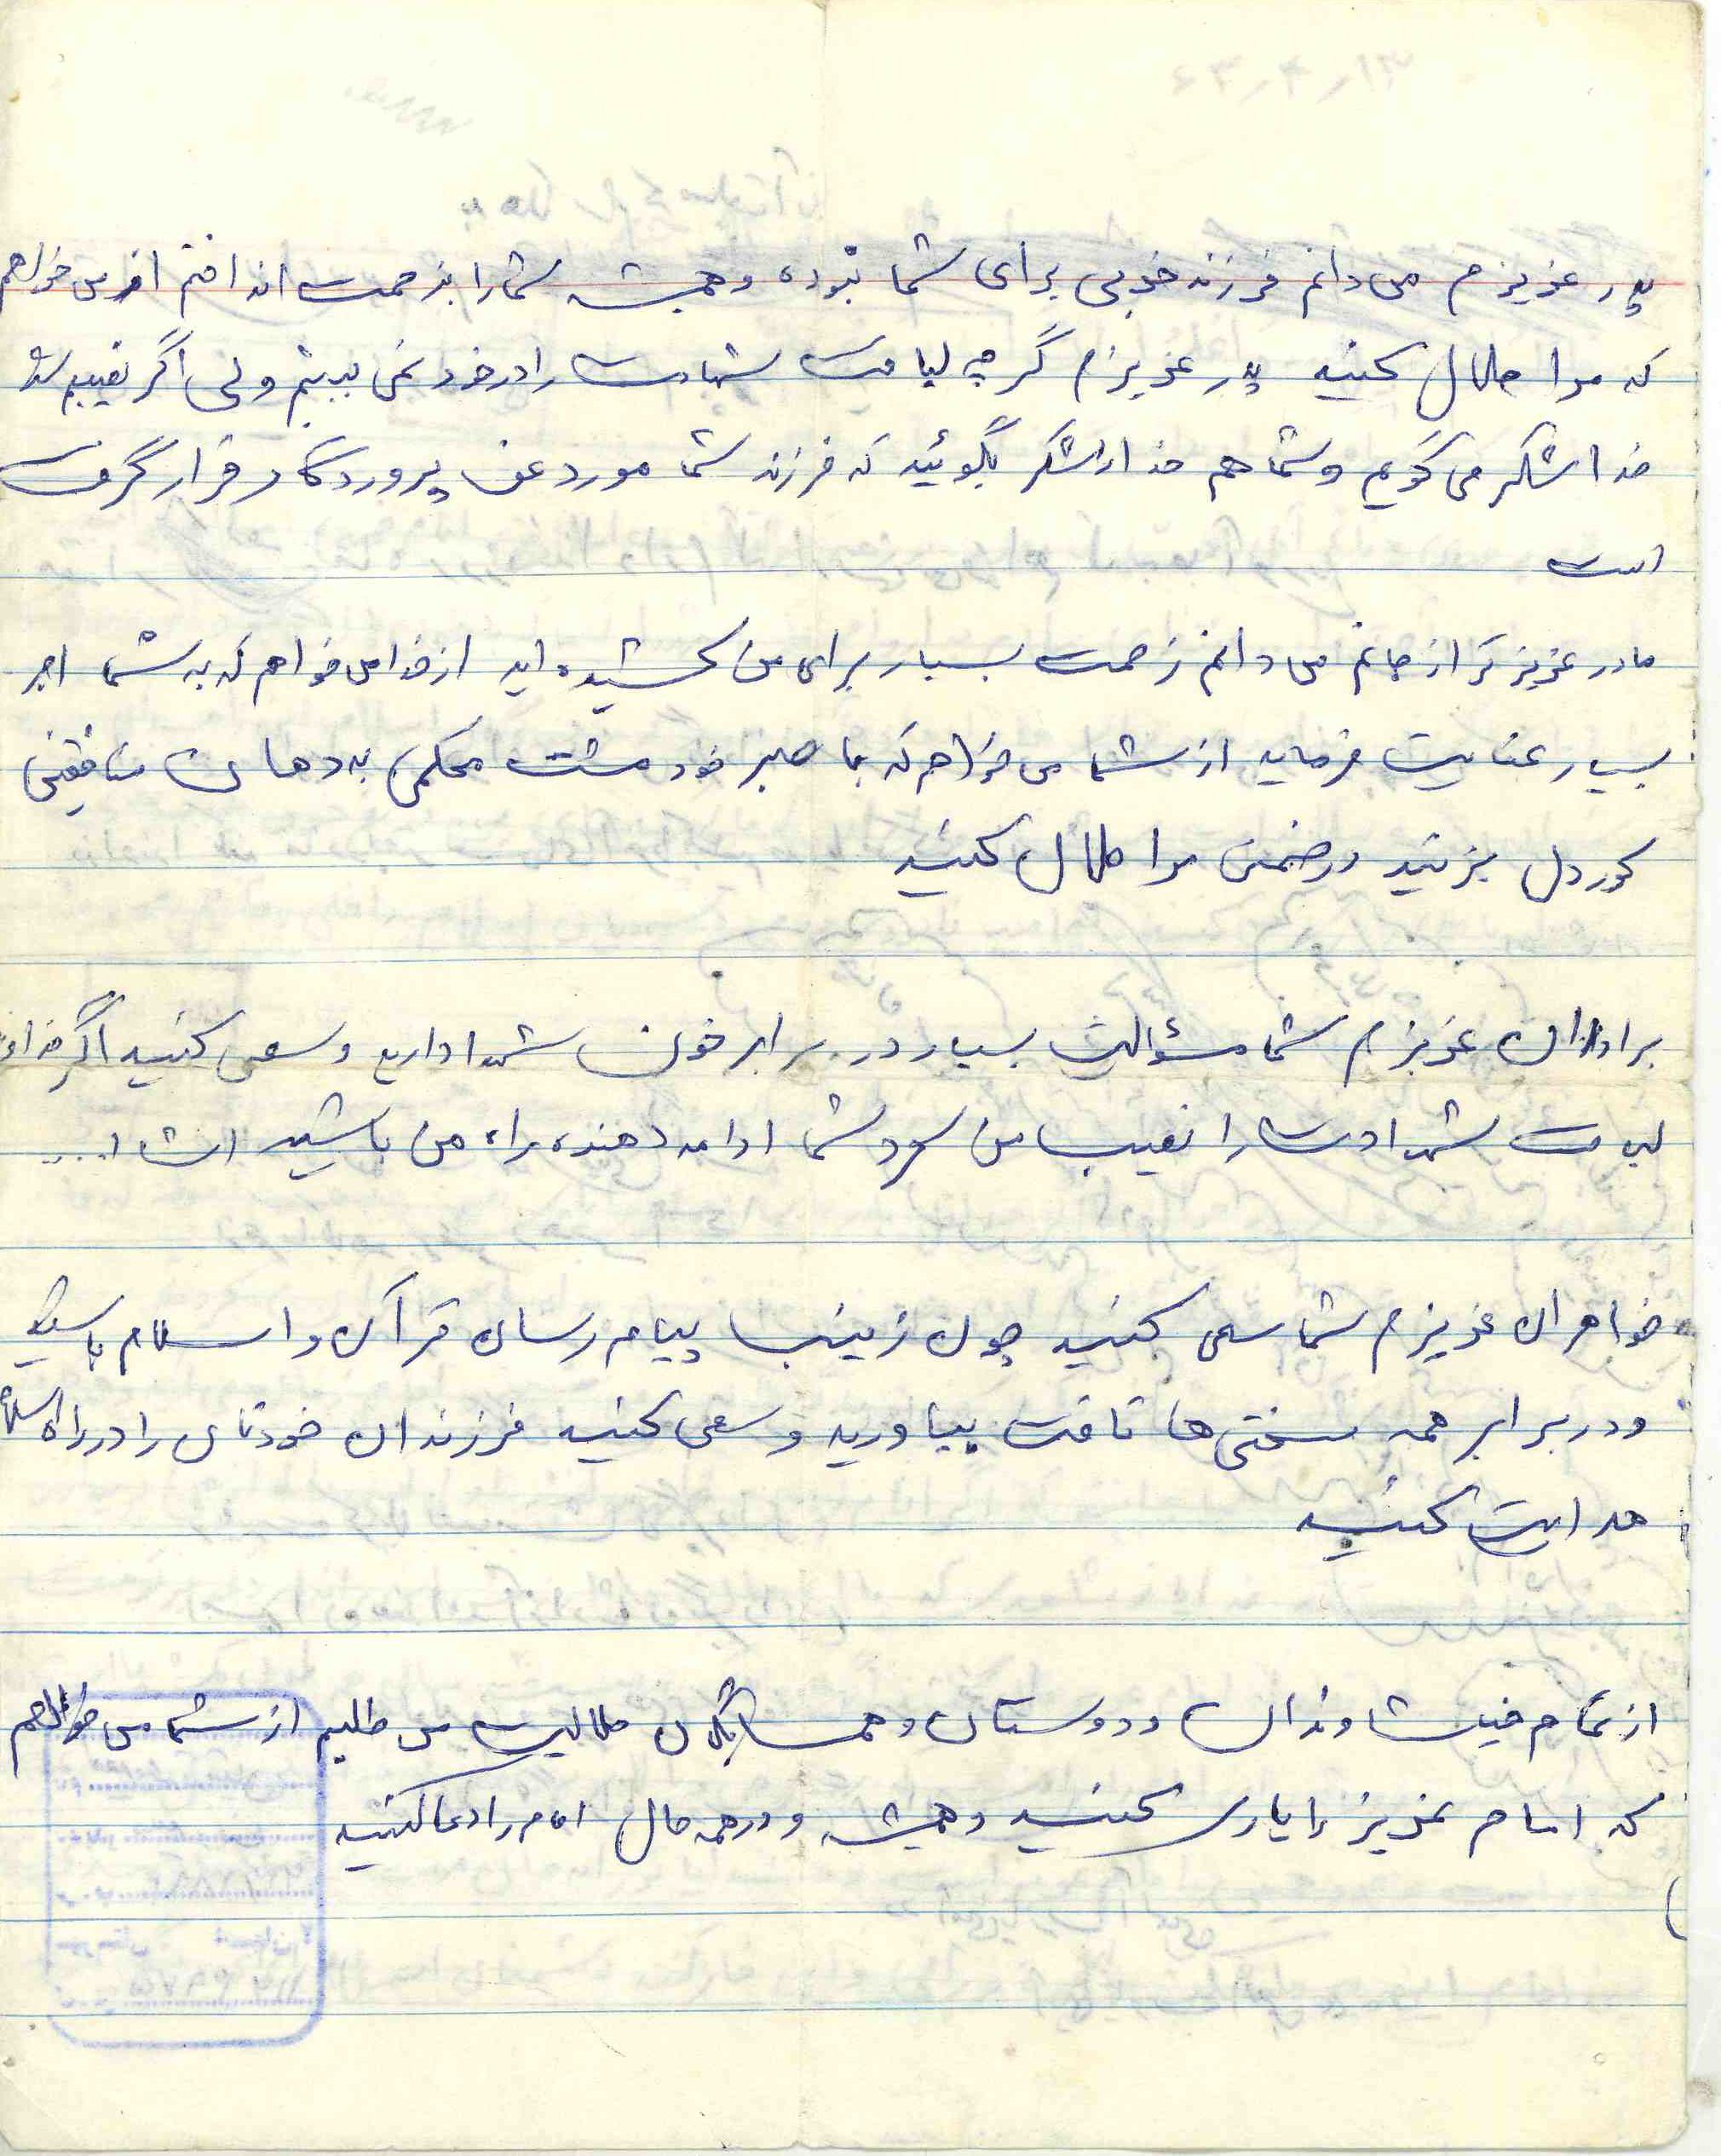 پدر عزیزم می دانم فرزند خوبی برای شما نبوده و همیشه شما را بزحمت انداختم از می خواهم
که مرا حلال کنید پدر عزیزم گرچه لیاقت شهادت را در خود نمی بینم ولی اگر نصیبم شد
خدا شکر می گویم و شما هم خدا را شکر بگوئید که فرزند شما مورد عفو پروردگار قرار گرفت
است
مادر عزیزتر از جانم می دانم زحمت بسیار برای من کشیده اید از خدا می خواهم که به شما اجر
بسیار عنایت فرماید از شما می خواهم که با صبر خود مشت محکمی به دهان منافقین
کوردل بزنید در ضمن مرا حلال کنید
برادران عزیزم شما مسئولیت بسیار در برابر خون شهدا دارید و سعی کنید اگر خداوند
لیاقت شهادت را نصیب من کرد شما ادامه دهنده راه من باشید انشا ا....
خواهران عزیزم شما سعی کنید چون زینب پیام رسان قرآن و اسلام باشید
و در برابر همه سختی ها تاقت بیاورید و سعی کنید فرزندان خودتان را در راه اسلام
هدایت کنید
از تمام خیشاوندان و دوستان و همسایگان حلالیت می طلبم از شما می خواهم
که امام عزیز را یاری کنید و همیشه و در همه حال امام را دعا کنید